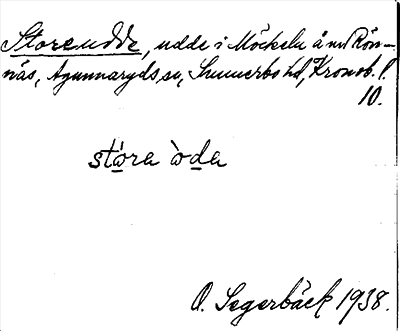 Storeudde, udde i Möckeln å nr Rön-
näs, Agunnaryds sn, Sunnerbo hd, Kronob. l.
10.
stóra òda
O. Segerbäck 1938.